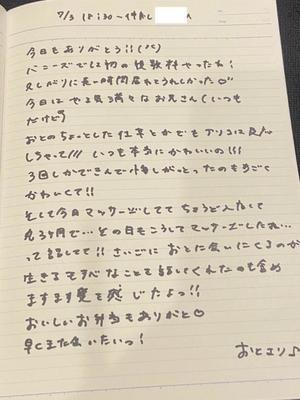 7/3 18:30〜
今日もありがとう!!
バニーズでは初の複数料やったね!
久しぶりに長い時間居れてうれしかった♡
今日は やる気満々なお兄さん(いつも
だけど
おとのちょっとした仕草とかでも
しちゃって/// いつも本当にかわいいの!!!
3回しかできんで悔しがっとったのもすごく
かわいくて!!
そして今日マッサージしててちょうど入店して
丸3ヶ月で…その日もこうしてマッサージしたね…
って話してて!! さいごに おとに会いにくるのが
生きるすべなことを話してくれたのも含め
ますます愛を感じたよっ!!
おいしいお弁当もありがと♡
早くまた会いたいっ!
おとよリ♪